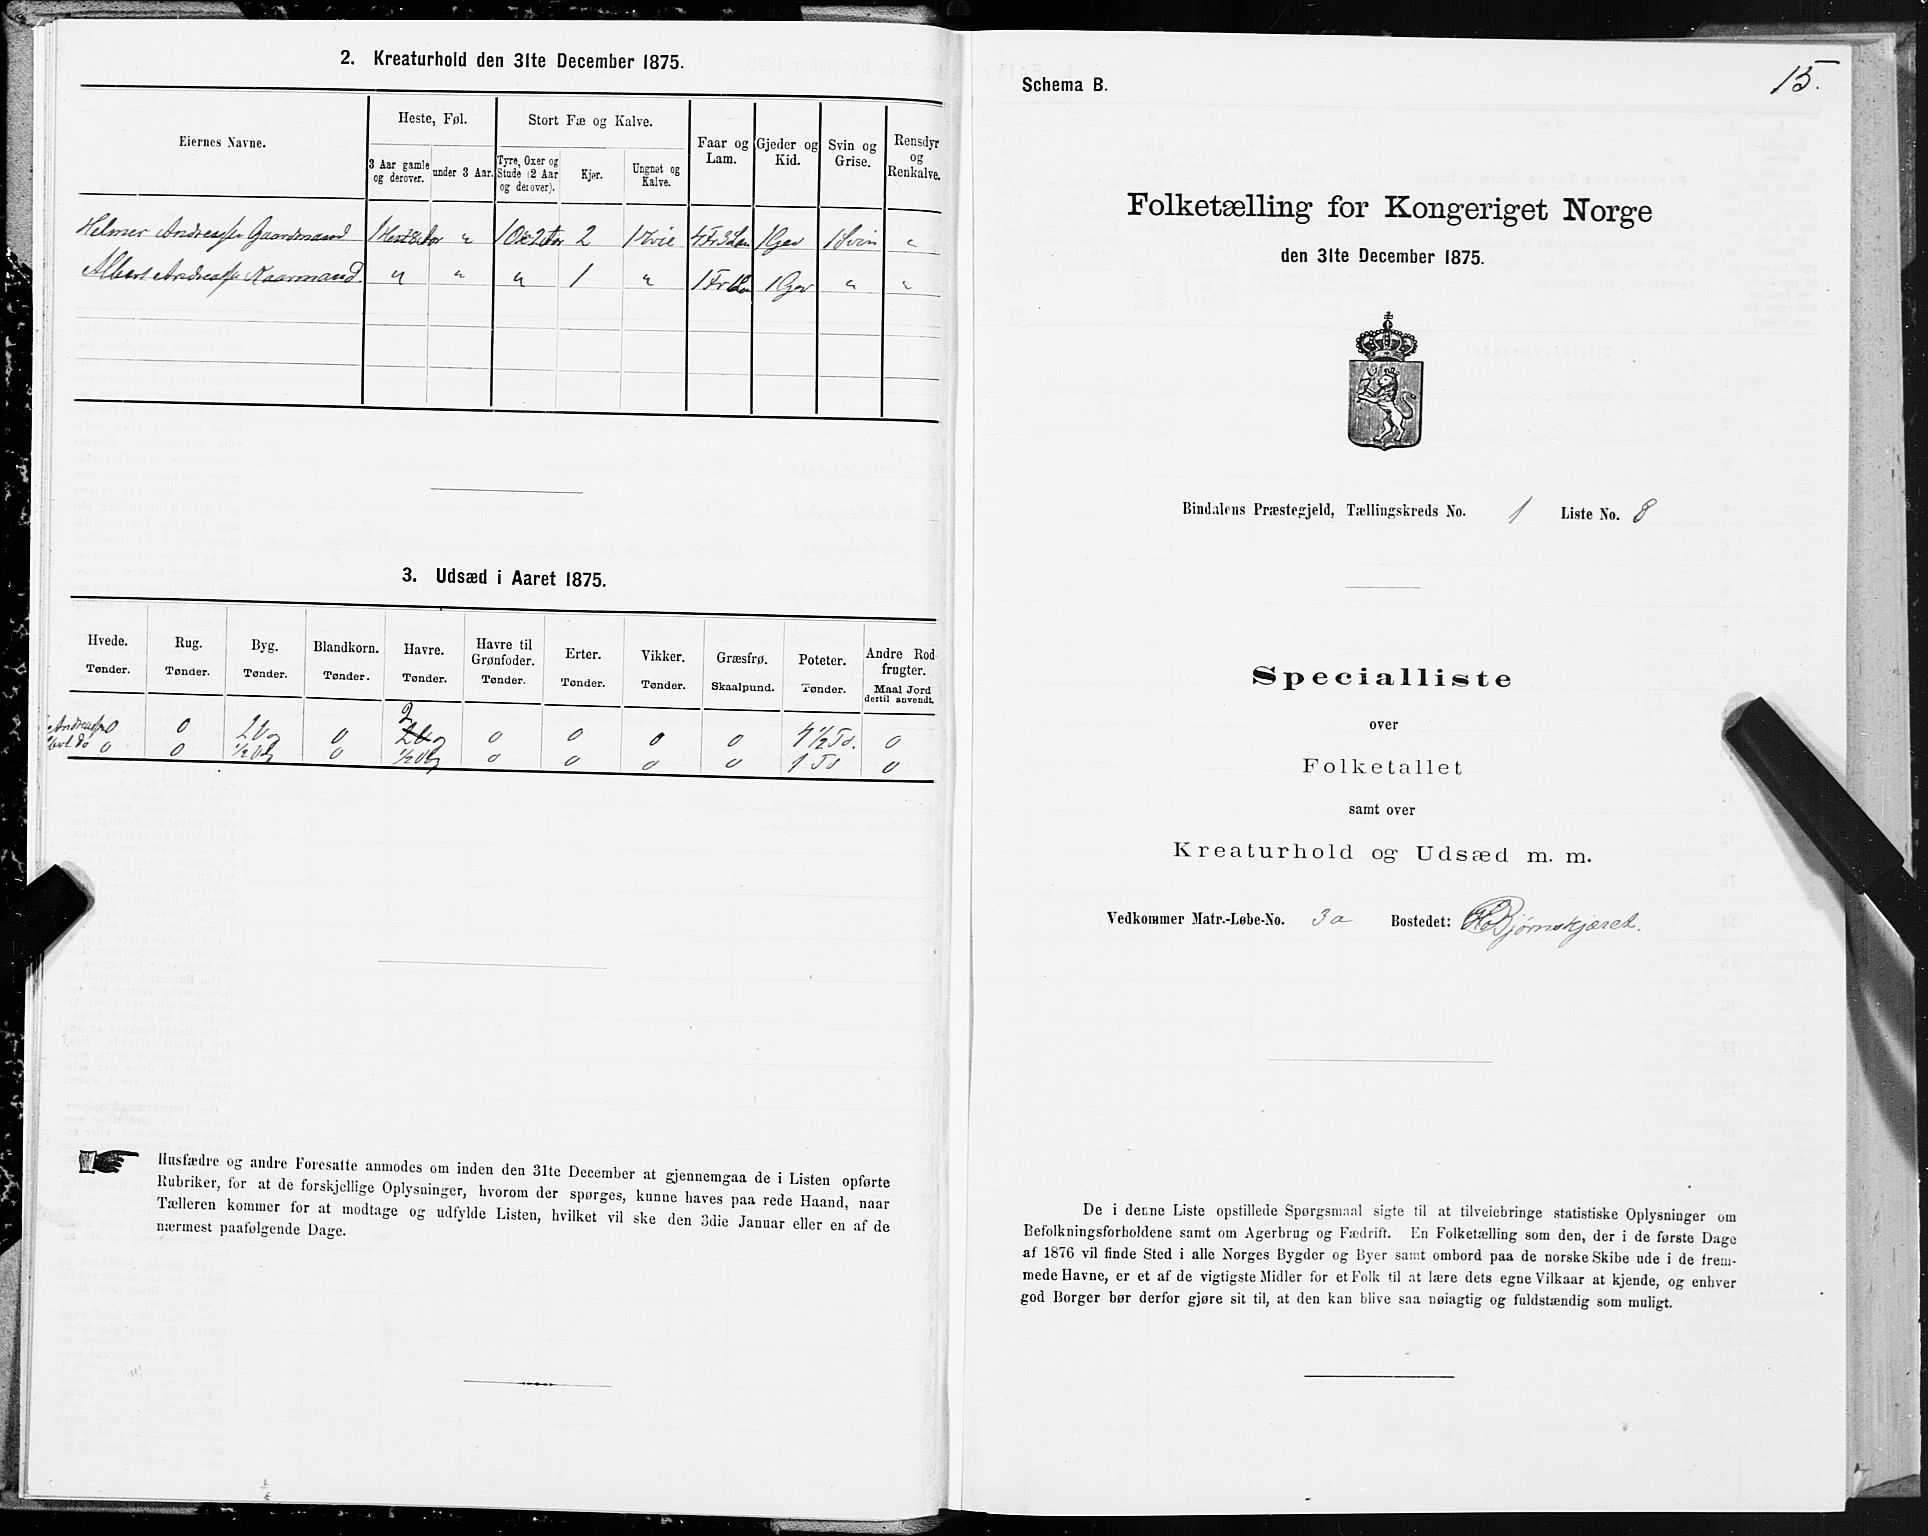 2. Kreaturhold den 31te December 1875.
Eiernes Navne.
Heste, Føl.
Stort Fæ og Kalve.
Faar og Lam.
Gjeder og Kid.
Svin og Grise.
Rensdyr og Renkalve.
3 Aar gamle og derover.
under 3 Aar.
Tyre, Oxer og Stude (2 Aar og derover).
Kjør.
Ungnøt og Kalve.
Helmer Andreassen Gaardmand 1 " 1 2 1 Kvie 4 Fr 3 Lam 1 Gev 1 Svin "
Albert Andreassen " " " 1 " 1 Fr 1 Gev " "
3. Udsæd i Aaret 1875.
Hvede. Rug. Byg. Blandkorn. Havre. Havre til Grønfoder. Erter. Vikker. Græsfrø. Poteter. Andre Rodfrugter.
Tønder. Tønder. Tønder. Tønder. Tønder. Tønder. Tønder. Tønder. Skaalpund. Tønder. Maal Jord dertil anvendt.
Andreassen 0 0 2 0 2 0 0 0 0 4 1/2 Td. 0
Do 0 0 1/2 0 1/2 0 0 0 0 1 Td 0
Husfædre og andre Foresatte anmodes om inden den 31te December at gjennemgaa de i Listen opførte
Rubriker, for at de forskjellige Oplysninger, hvorom der spørges, kunne haves paa rede Haand, naar
Tælleren kommer for at modtage og udfylde Listen, hvilket vil ske den 3die Januar eller en af de
nærmest paafølgende Dage.
15.
Schema B.
Folketælling for Kongeriget Norge
den 31te December 1875.
Bindalens Præstegjeld, Tællingskreds No. 1 Liste No. 8
Specialliste
over
Folketallet
samt over
Kreaturhold og Udsæd m. m.
Vedkommer Matr.-Løbe-No. 3a Bostedet: Bjørnskjæret.
De i denne Liste opstillede Spørgsmaal sigte til at tilveiebringe statistiske Oplysninger om
Befolkningsforholdene samt om Agerbrug og Fædrift. En Folketælling som den, der i de første Dage
af 1876 vil finde Sted i alle Norges Bygder og Byer samt ombord paa de norske Skibe ude i de frem-
mede Havne, er et af de vigtigste Midler for et Folk til at lære dets egne Vilkaar at kjende, og enhver
god Borger bør derfor gjøre sit til, at den kan blive saa nøiagtig og fuldstændig som muligt.